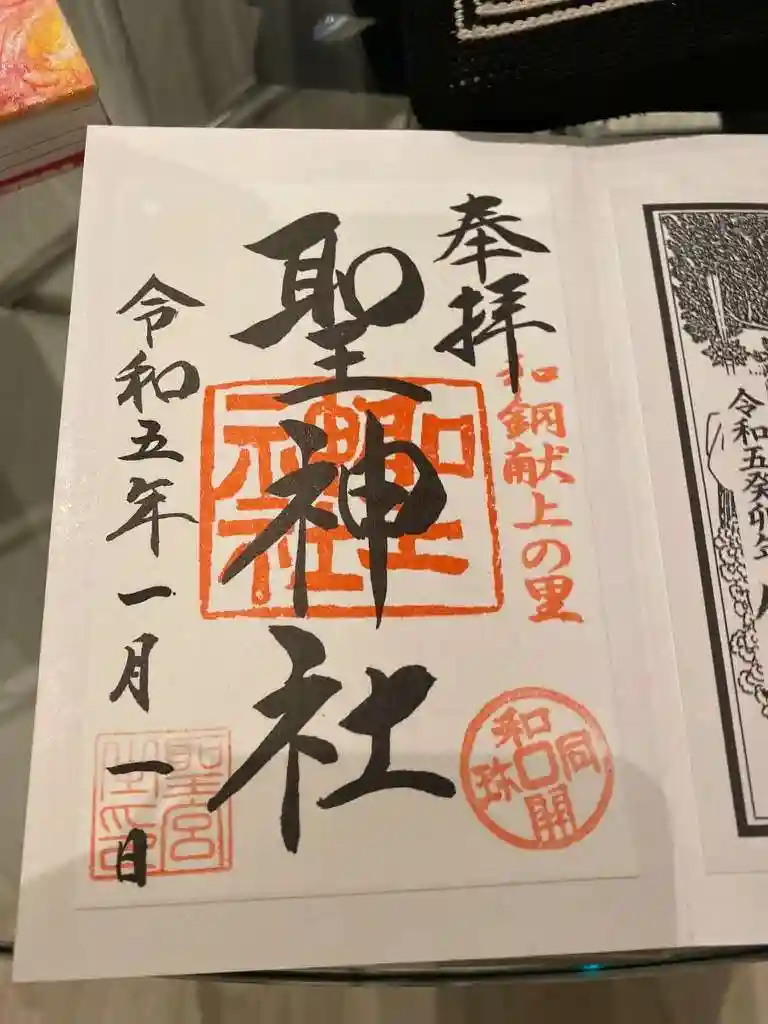 奉拝
和銅献上の里
和同開珎
聖神社
聖神社
令和五年一月一日
聖宮
令和五癸卯年